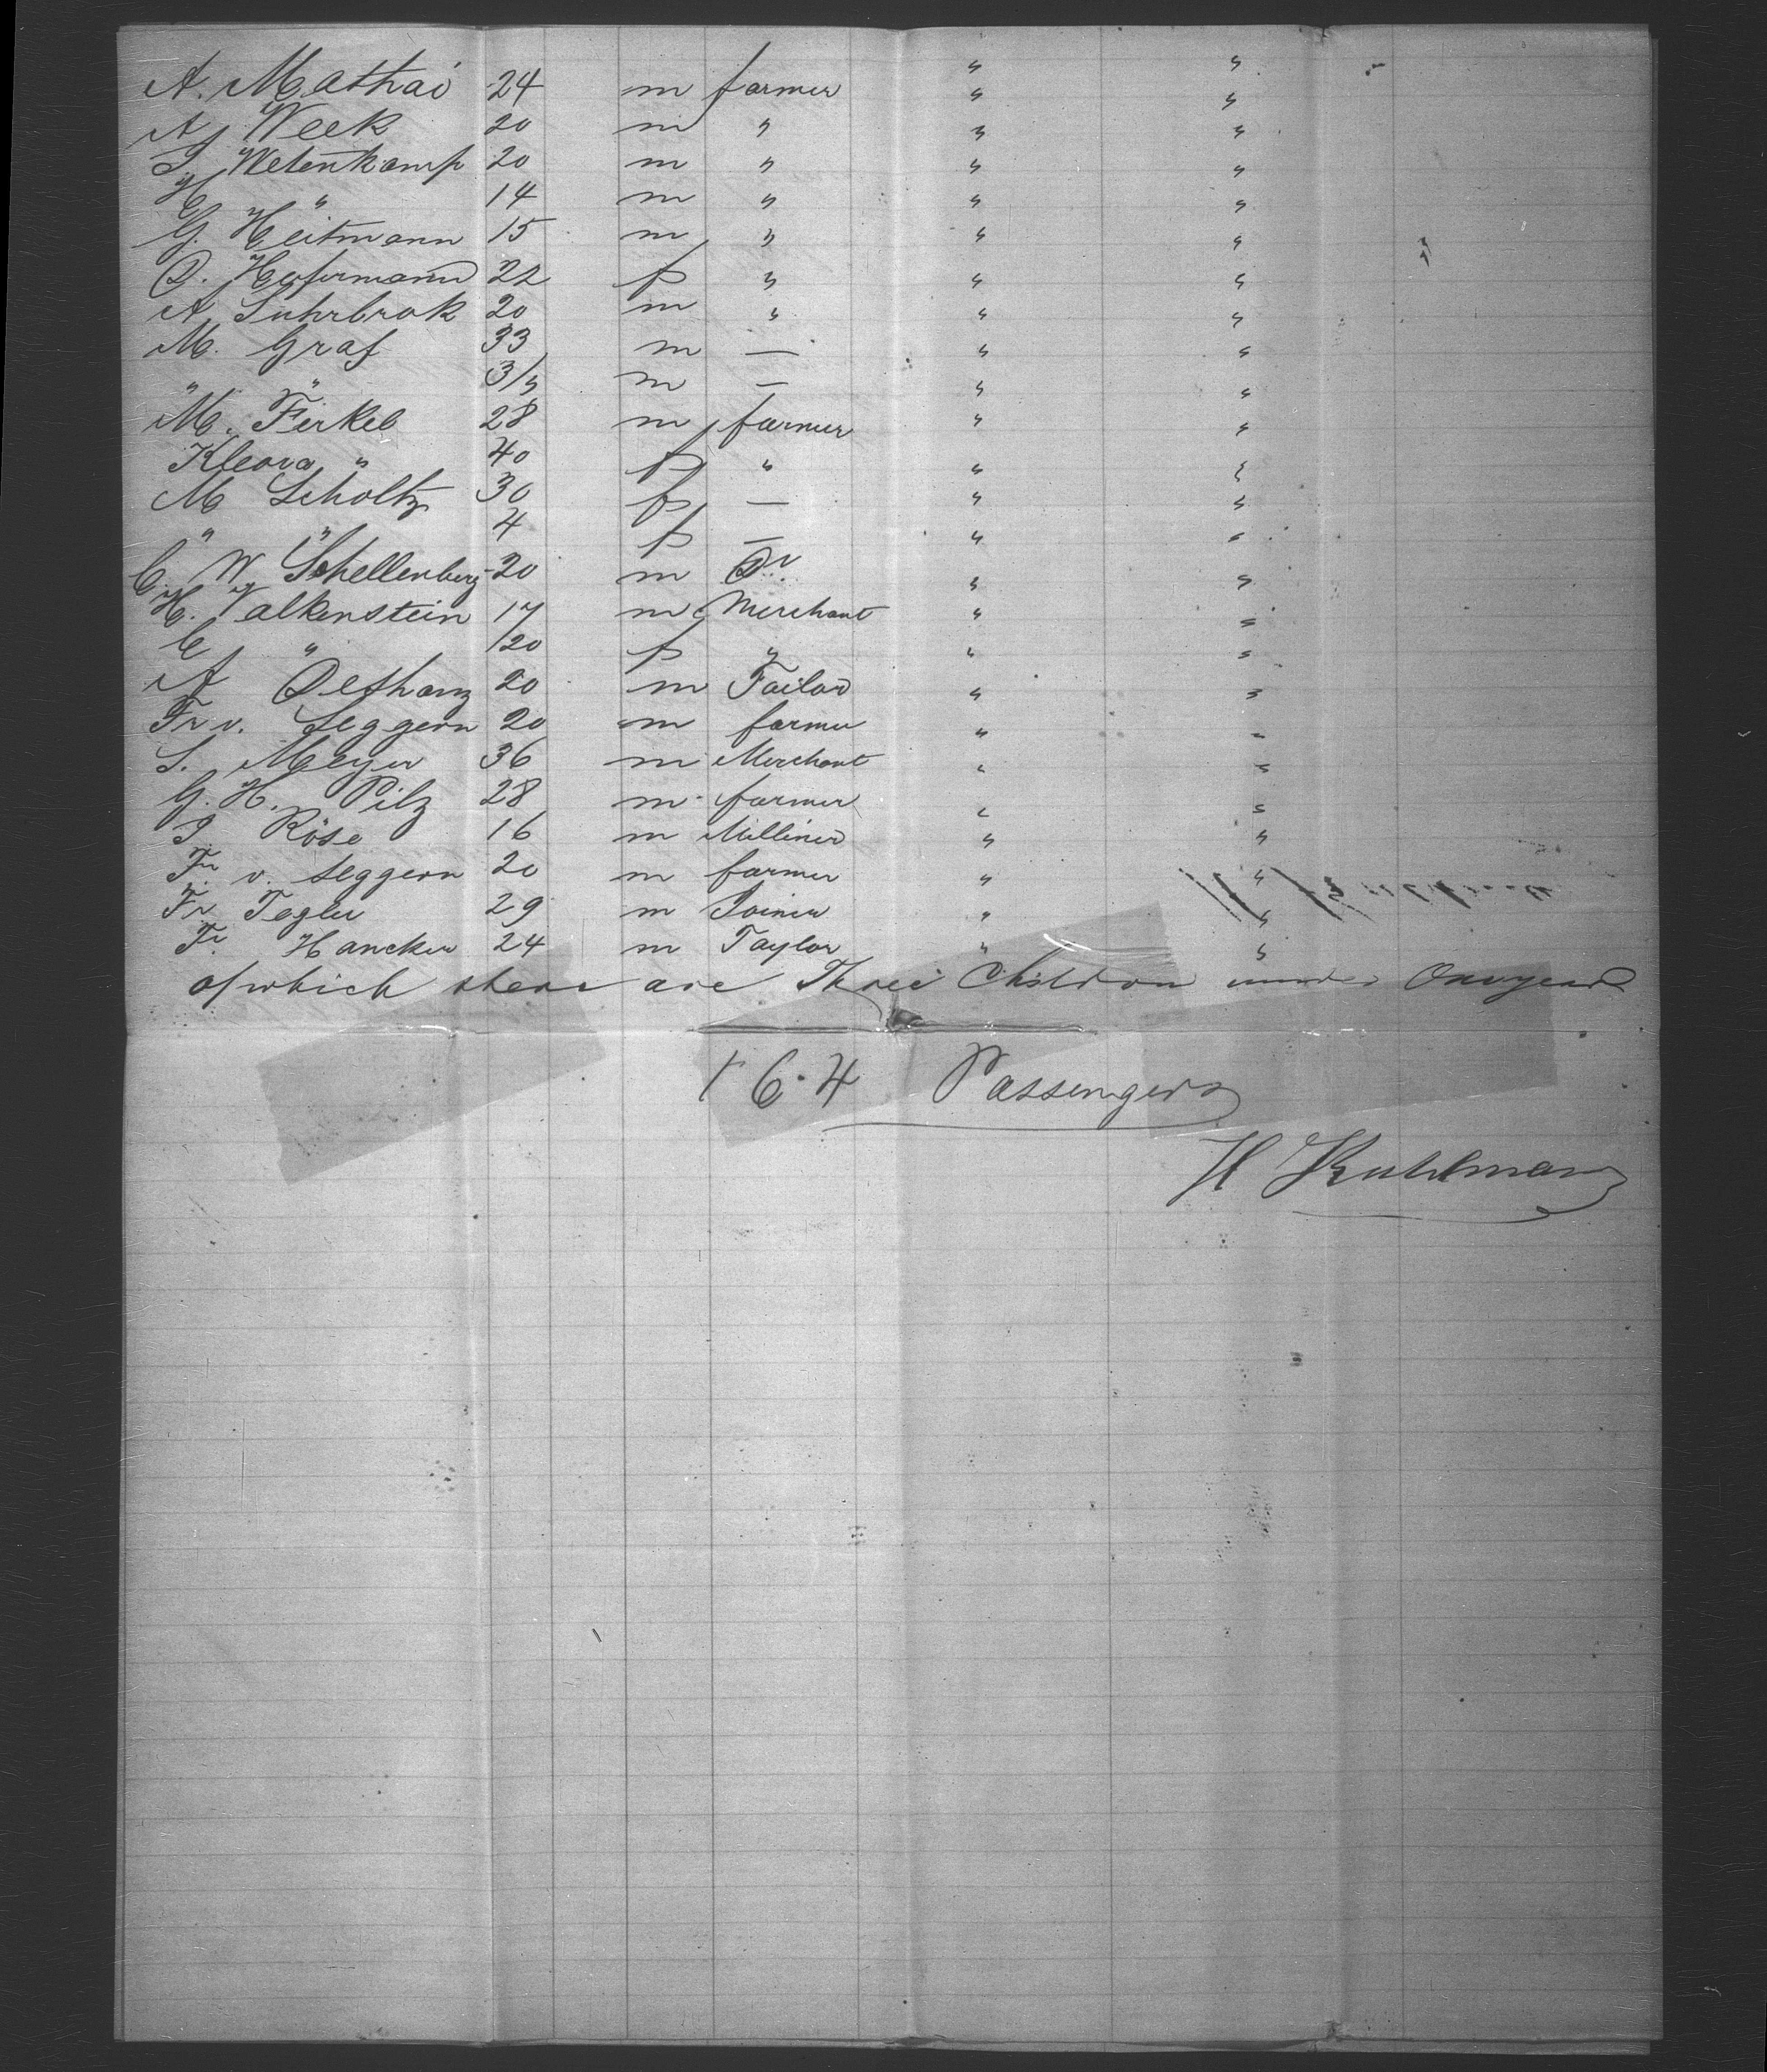 A. Mathai 24 m farmer " "
A Week 20 m " " "
J. Wetenkamp 20 m " " "
H " 14 m " " "
G. Heitmann 15 m " " "
D. Hafermann 22 f " " "
A Suhrbrok 20 m " " "
M. Graf 33 m — " "
" " 3/4 m — " "
M. Ferkel 28 m farmer " "
Kleora " 40 f " " "
M Scholtz 30 f — " "
" " 4 f — " "
C. W. Schellenberg 20 m Dr " "
H. Valkenstein 17 m Merchant " "
C " 20 f " " "
A Dethanz 20 m Tailor " "
Fr v. Seggern 20 m farmer " "
S. Meyer 36 m Merchant " "
G. H. Pilz 28 m farmer " "
J. Röse 16 m Milliner " "
Fr v. Seggern 20 m farmer " "
Fr Tegler 29 m Joiner " "
Fr. Hancken 24 m Taylor " "
of which there are Three Children under One year
164 Passengers
H Kuhlmann